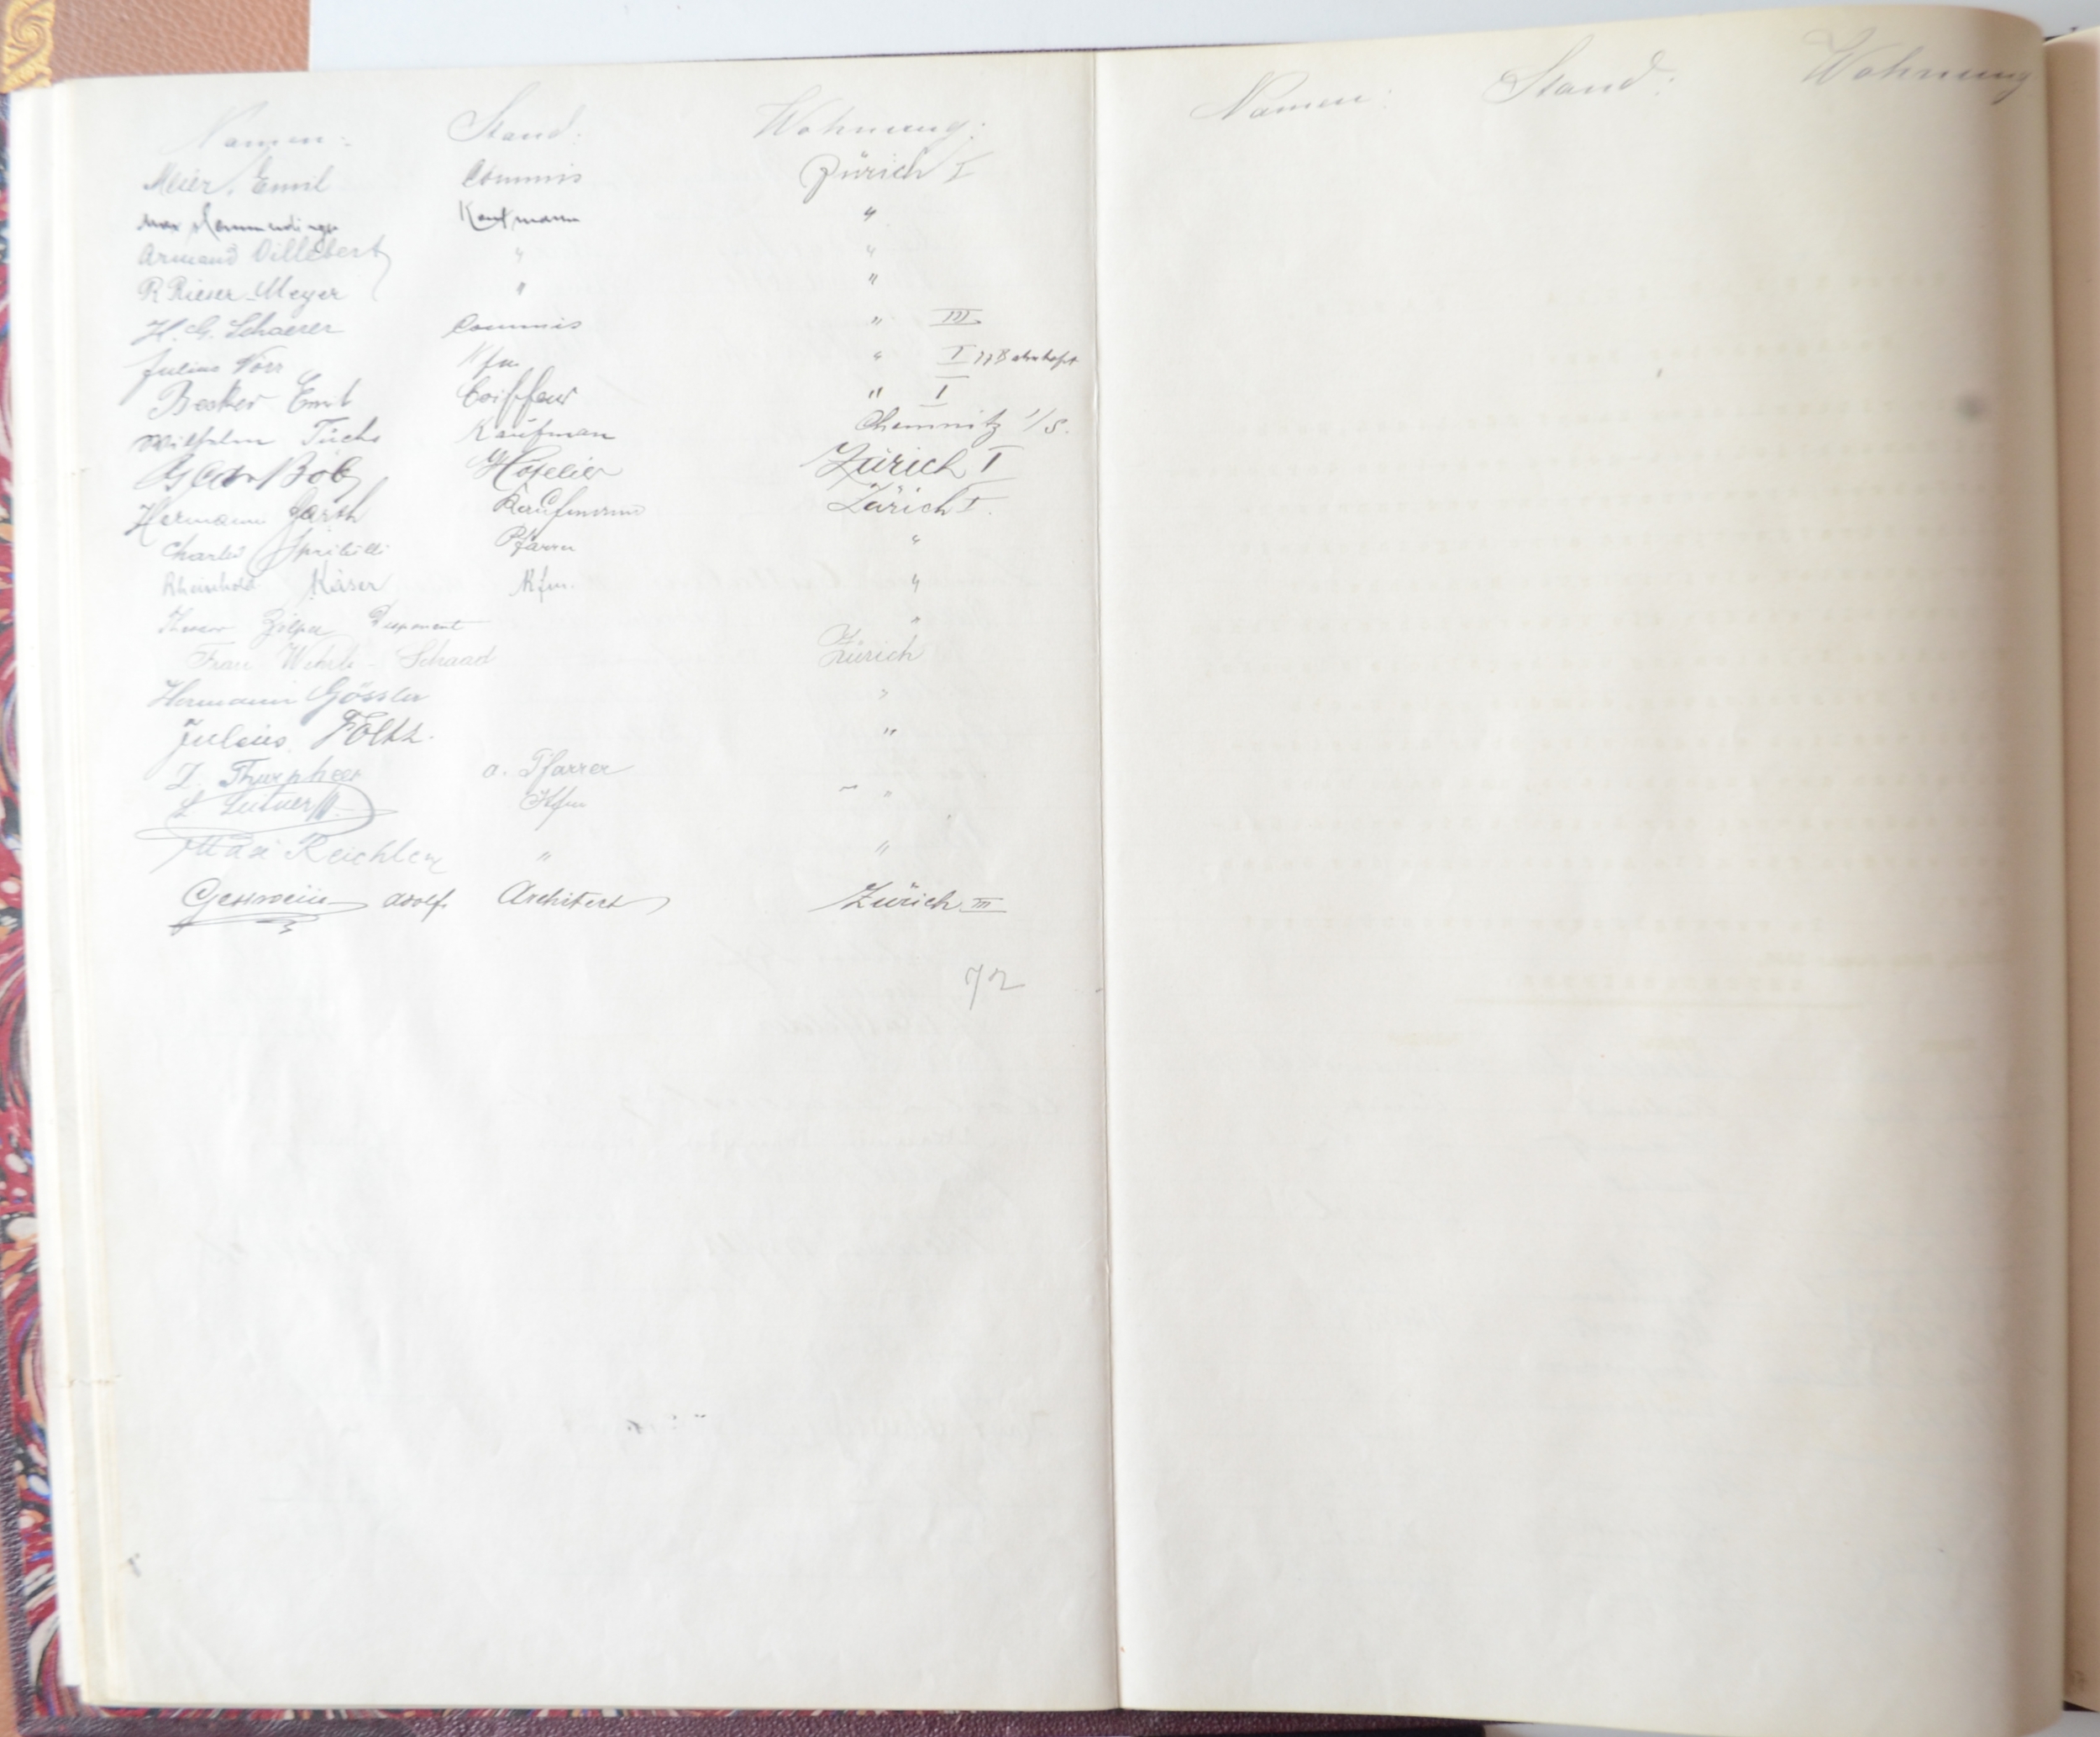 Namen: Stand: Wohnung:
Meier, Emil Commis Zürich I
Max Kaufmann "
Armand " "
R Rieser-Meyer " "
H. G. Schaerer Commis " III
Julius Nörr Kfm. " I 77 Bahnhofst
Becker Emil Coiffeur " I
Wilhelm Fuchs Kaufman Chemnitz i/S.
Hôtelier Zürich I
Hermann Barth Kaufmann Zürich I.
Charles Pfarrer "
Rheinhold Käser Kfm. "
Disponent "
Frau Wehrli-Schaad Zürich
Hermann Gössler "
Julius Foltz. "
a. Pfarrer
L. Leutner Kfm "
Max Reichlen " "
Gesswein Adolf. Architect Zürich III
72
Namen: Stand: Wohnung